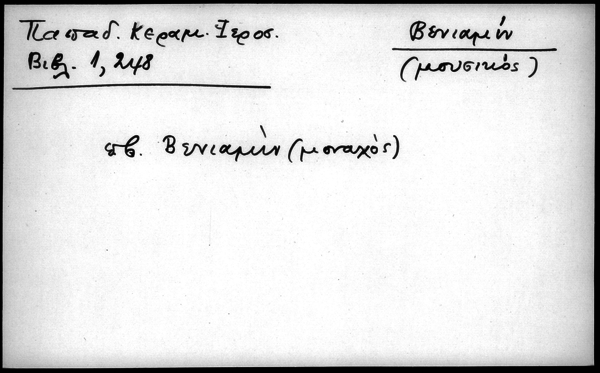 Παπαδ. Κεραμ. Ἱεροσ.
Βιβλ. 1, 248
Βενιαμίν
(μουσικός)
πβ. Βενιαμὶν (μοναχός)